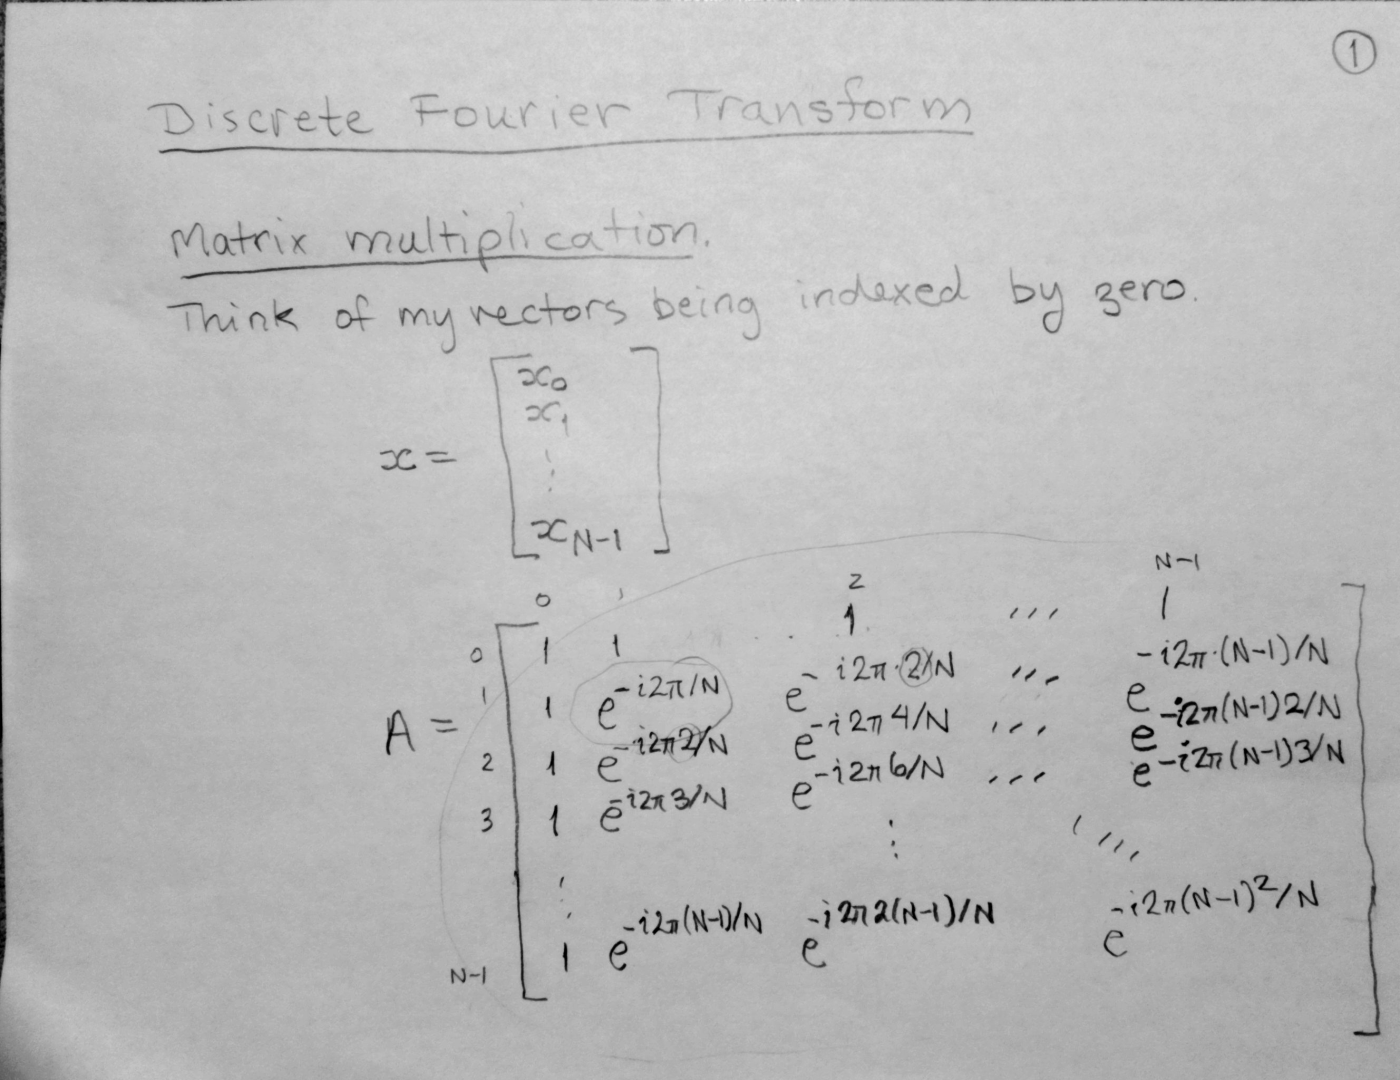 1
Discrete Fourier Transform
Matrix multiplication.
Think of my vectors being indexed by zero.
x = [x₀
x₁
⋮
x_{N-1}]
0 1 2 N-1
0 1 1 1 ... 1
1 1 e^{-i2π/N} e^{-i2π·2/N} ... e^{-i2π·(N-1)/N}
A =
2 1 e^{-i2π2/N} e^{-i2π4/N} ... e^{-i2π(N-1)2/N}
3 1 e^{-i2π3/N} e^{-i2π6/N} ... e^{-i2π(N-1)3/N}
⋮ ⋮ ⋱
N-1 1 e^{-i2π(N-1)/N} e^{-i2π2(N-1)/N} e^{-i2π(N-1)²/N}